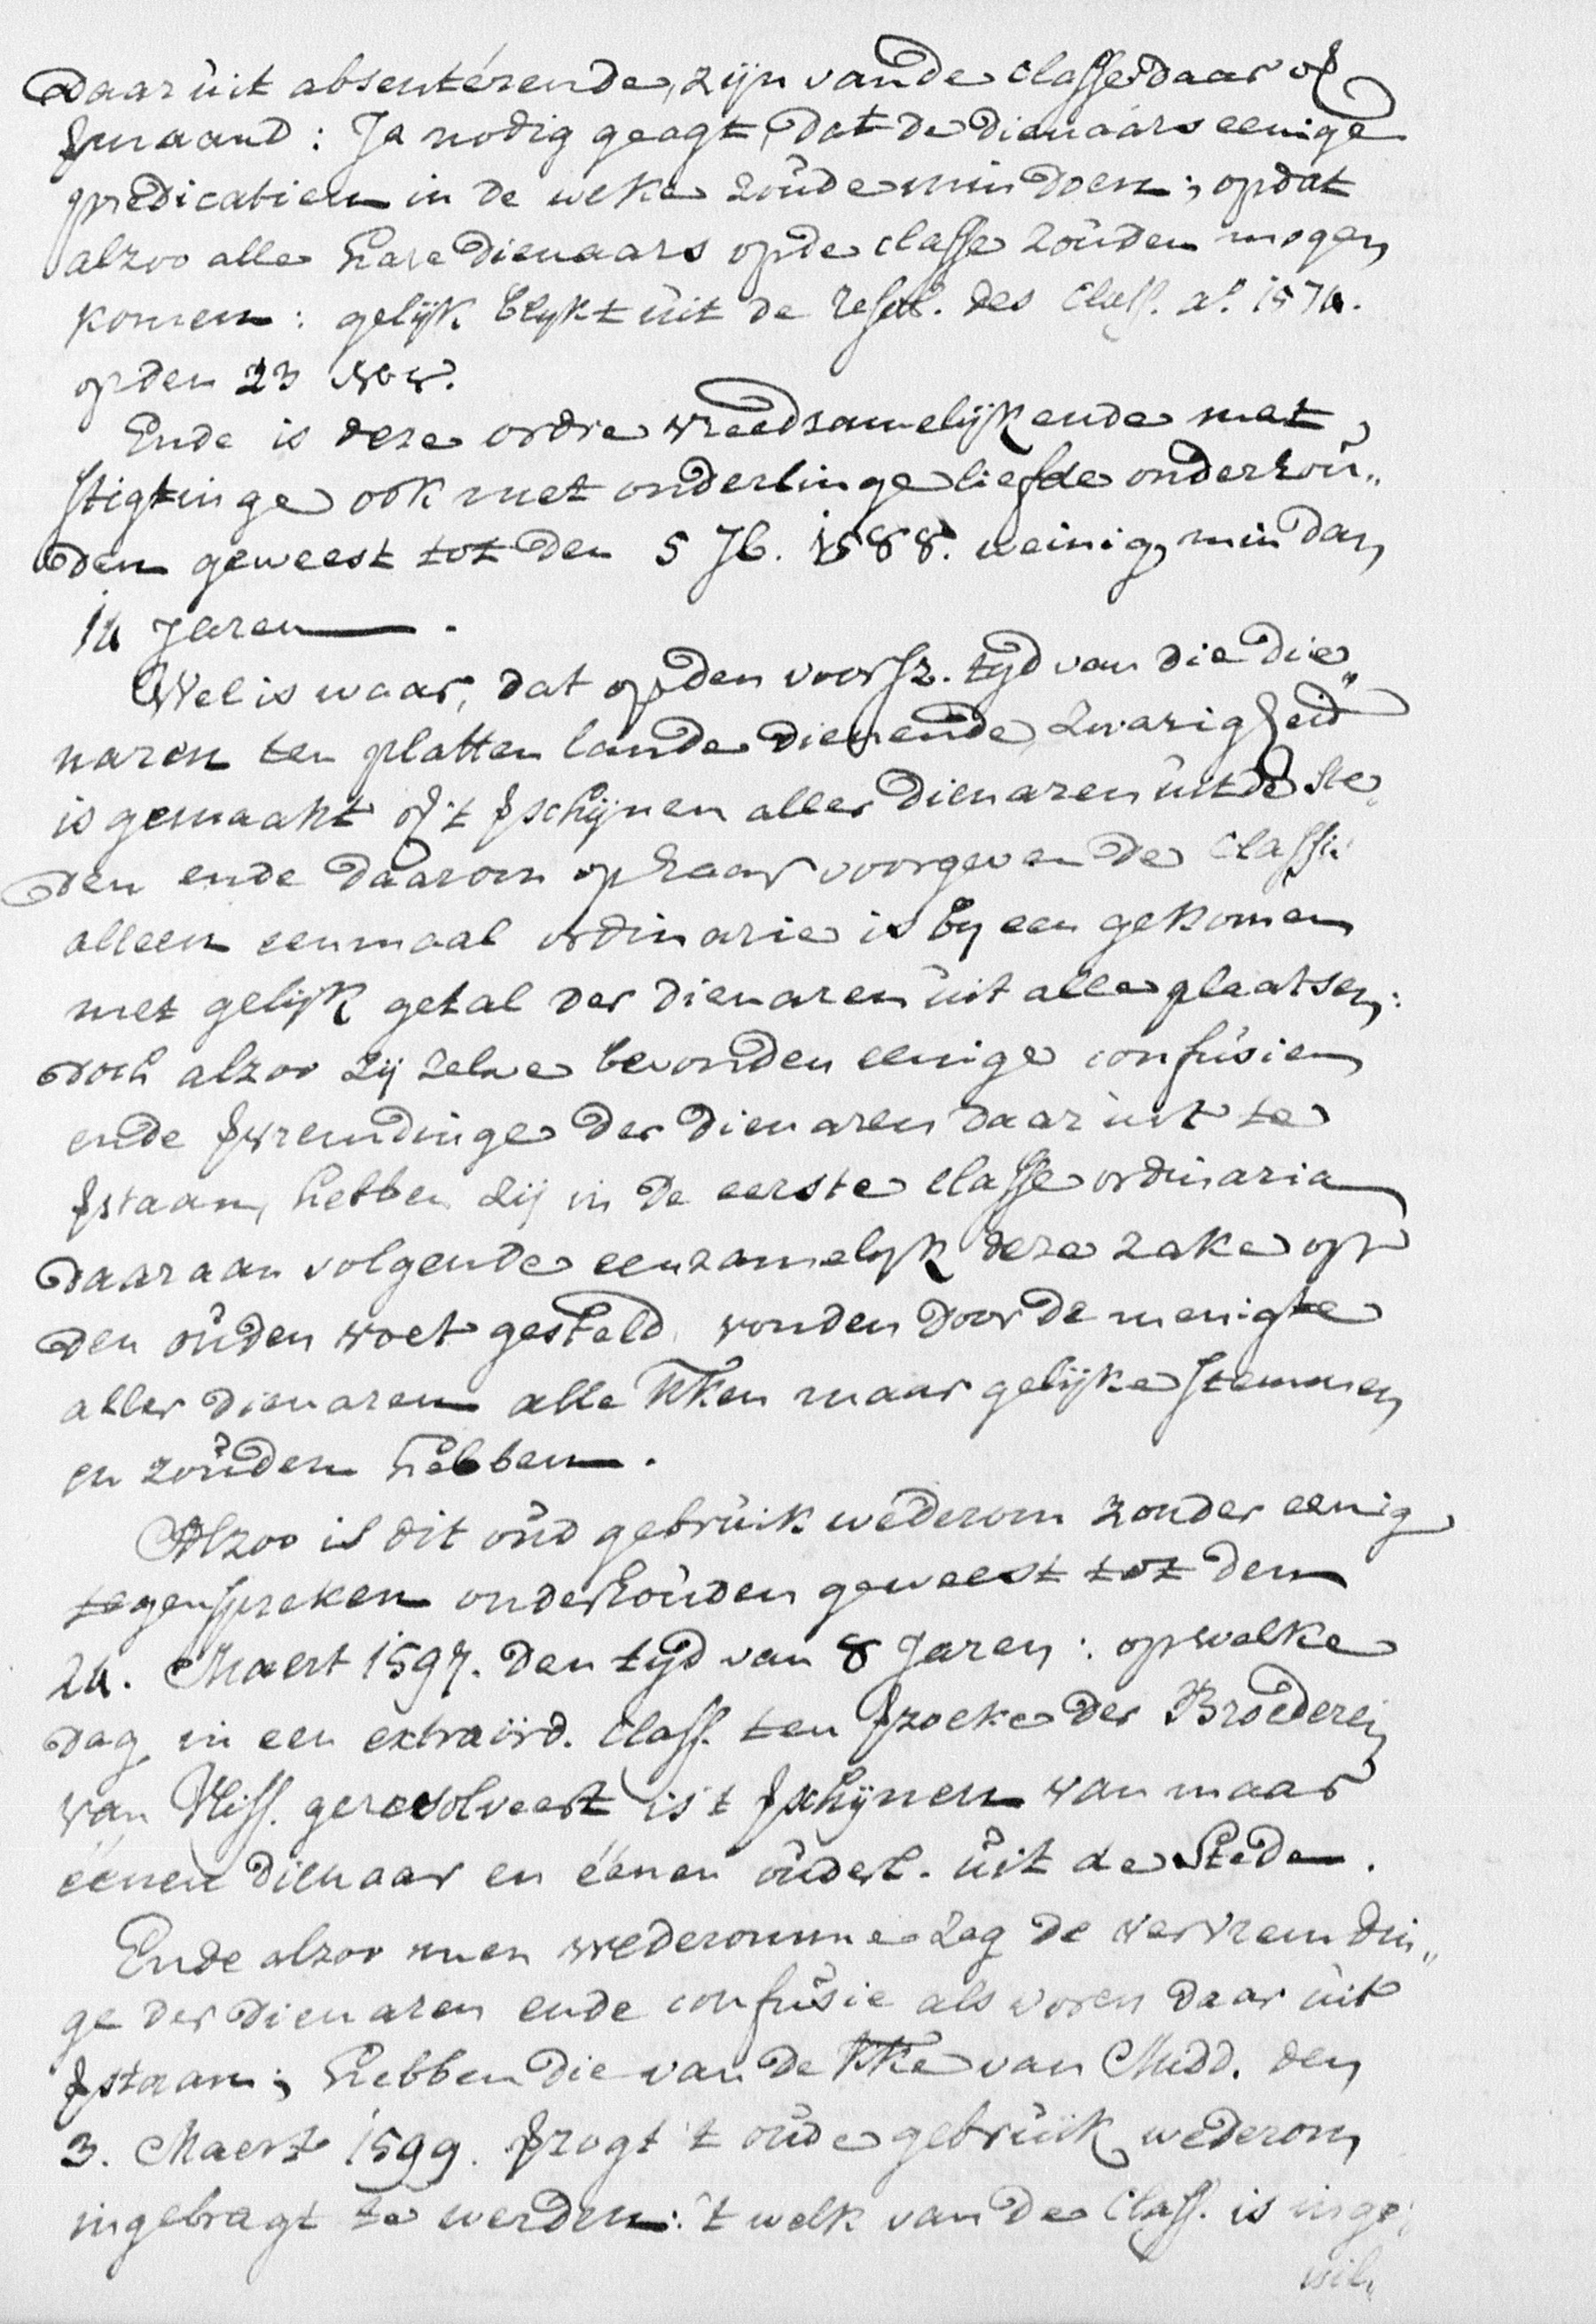 daar uit absenterende, zijn van de classe daar of
ſmaand: Ja nodig geagt, dat de dienaars eenige
predicatien in de weke zoude min doen; opdat
alzoo alle hare dienaars op de classe zouden mogen
komen: gelijk blykt uit de resol. des Class. aº. 1574.
op den 23 Nov.
Ende is deze ordre vreedsamelijk ende met
stigtinge ook met onderlinge liefde onderhou„
den geweest tot den 5 1588. weinig min dan
14 Jaren.
Wel is waar, dat op den voorsz. tyd van die die„
naren ten platten lande dienende, zwarigheid
is gemaakt of 't ſschijnen aller dienaren uit de Ste„
den ende daarom op haar voorgeven de Classis
alleen eenmaal ordinarie is by een gekomen
met gelijk getal der dienaren uit alle plaatsen:
doch alzoo zij zelve bevonden eenige confusien
ende ſvremdinge der dienaren daar uit te
ſstaan, hebben zij in de eerste classe ordinaria
daar aan volgende eenzamelijk deze zake op
den ouden voet gesteld, vonden door de menigte
aller dienaren alle kken maar gelijke stemmen
en zouden hebben.
Alzoo is dit oud gebruik wederom zonder eenig
tegenspreken onderhouden geweest tot den
24. Maert 1597. den tyd van 8 Jaren: op welke
dag in een extraord. Class. ten ſzoeke der Broederen
van Vliss. geresolveert is 't ſschijnen van maar
éénen dienaar en éénen ouderl. uit de Steden.
Ende alzoo men wederomme zag de vervremdin„
ge der dienaren ende confusie als voren daar uit
ſstaan; hebben die van de kke van Midd. den
3. Maert 1599. ſzogt 't oude gebruik wederom
ingebragt te werden: 't welk van de Class. is inge„
wil„